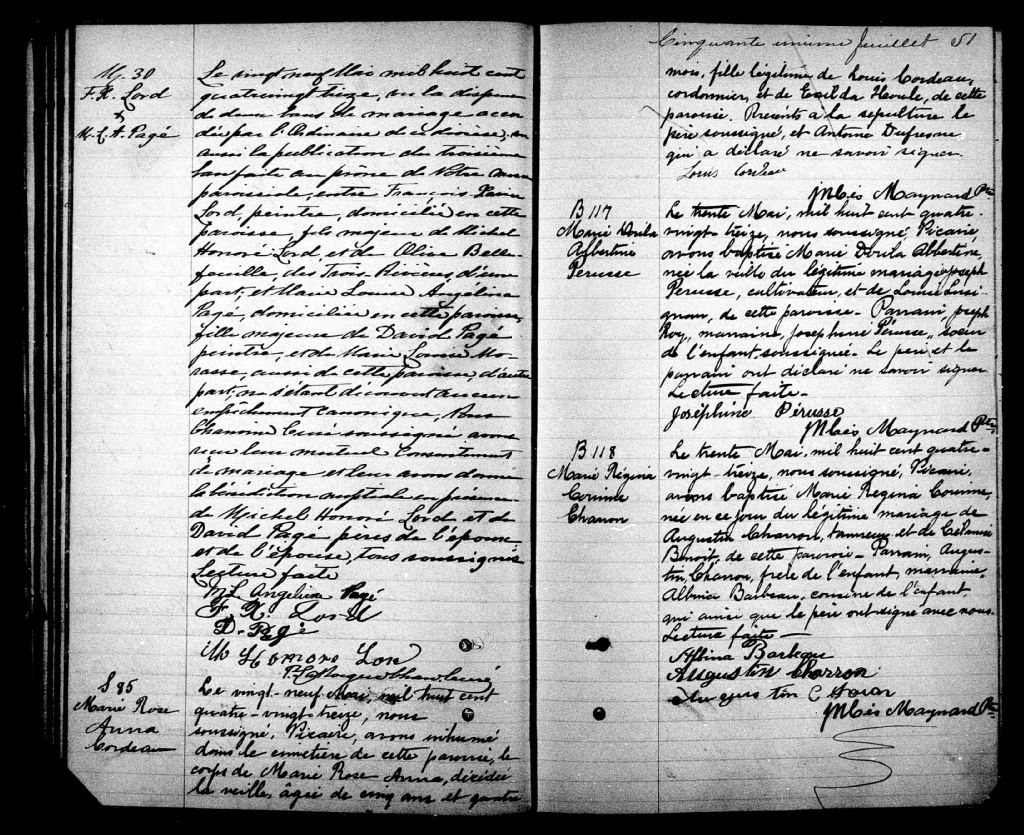 M. 30
F. X. Lord
&
M. L. A. Pagé
Le vingt neuf Mai mil huit cent
quatrevingt treize, vu la dispense
de deux bans de mariage accor
dée par l'Ordinaire de ce diocèse, vu
aussi la publication du troisième
ban faite au prone de Notre Messe
paroissiale, entre François Xavier
Lord, peintre, domicilié en cette
paroisse, fils majeur de Michel
Honoré Lord, et de Olive Belle-
feuille, des Trois-Rivières, d'une
part, et Marie Louise Angélina
Pagé, domiciliée en cette paroisse,
fille majeure de David Pagé
peintre, et de Marie Louise Mo-
rasse, aussi de cette paroisse, d'autre
part; ne s'étant découvert aucun
empêchement canonique, Nous
Chanoine Curé soussigné avons
reçu leur mutuel consentement
de mariage et leur avons donné
la bénédiction nuptiale en présence
de Michel Honoré Lord et de
David Pagé pères de l'époux
et de l'épouse, tous soussignés
Lecture faite
M. L. Angelina Pagé
F. X. Lord
D. Pagé
M Honore Lor
S 85
Marie Rose
Anna
Cordeau
Le vingt-neuf Mai, mil huit cent
quatre-vingt-treize, nous
soussigné, Vicaire, avons inhumé
dans le cimetière de cette paroisse, le
corps de Marie Rose Anna, décédée
la veille, âgée de cinq ans et quatre
Cinquante unième feuillet 51
mois, fille légitime de Louis Cordeau,
cordonnier, et de Exilda Houle, de cette
paroisse. Présents à la sépulture le
père soussigné, et Antoine Dufresne
qui a déclaré ne savoir signer.
Louis Cordeau
Maynard Ptre
B 117
Marie Dorila
Albertine
Perusse
Le trente Mai, mil huit cent quatre-
vingt-treize, nous soussigné, Vicaire
avons baptisé Marie Dorila Albertine
née la veille du légitime mariage de Joseph
Perusse, cultivateur, et de Louise Lusi
gnan, de cette paroisse - Parrain, Joseph
Roy, marraine, Josephine Pérusse, soeur
de l'enfant soussignée - Le père et le
parrain ont déclaré ne savoir signer
Lecture faite -
Joséphine Pérusse
Maynard Ptre
B 118
Marie Régina
Corinne
Charron
Le trente Mai, mil huit cent quatre-
vingt-treize, nous soussigné, Vicaire,
avons baptisé Marie Regina Corinne,
née en ce jour du légitime mariage de
Augustin Charron, tanneur, et de Célanise
Benoit, de cette paroisse - Parrain, Augus-
tin Charron, frère de l'enfant, marraine,
Albina Barbeau, cousine de l'enfant
qui ainsi que le père ont signé avec nous.
Lecture faite -
Albina Barbeau
Augustin Charron
Augustin
Maynard Ptre